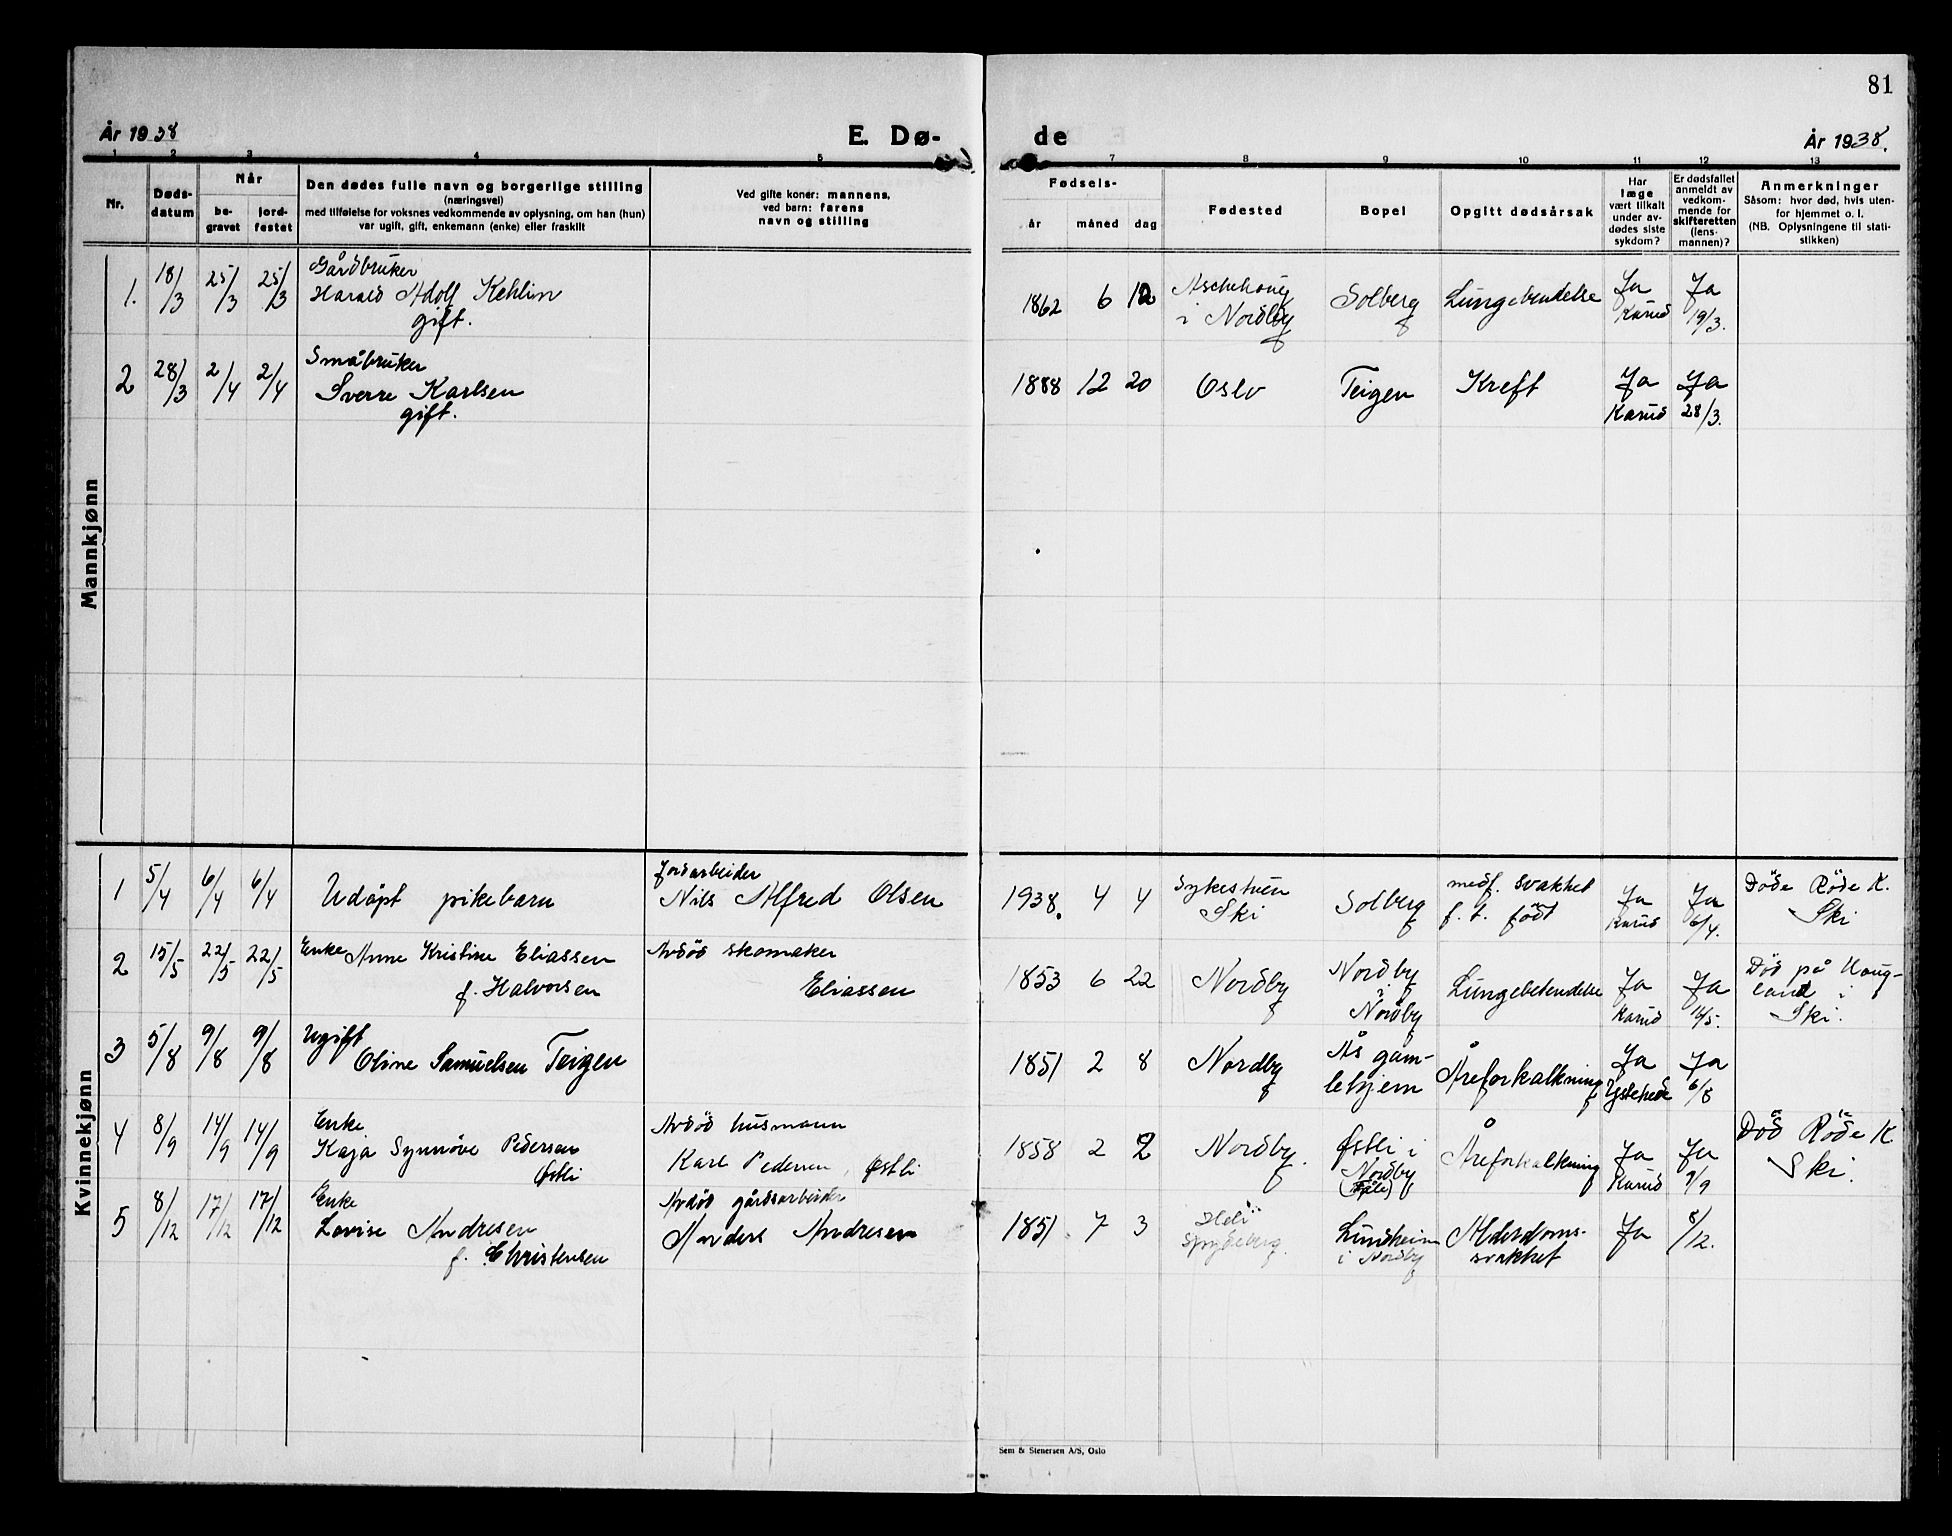 81
År 1938
E. Dø-
de
År 1938.
1 2 3 4 5 7 8 9 10 11 12 13
Nr.
Døds-
datum
Når
be-
gravet
jord-
festet
Den dødes fulle navn og borgerlige stilling
(næringsvei)
med tilføielse for voksnes vedkommende av oplysning, om han (hun)
var ugift, gift, enkemann (enke) eller fraskilt
Ved gifte koner: mannens,
ved barn: farens
navn og stilling
Fødsels-
år måned dag
Fødested
Bopel
Opgitt dødsårsak
Har
læge
vært tilkalt
under av-
dødes siste
sykdom?
Er dødsfallet
anmeldt av
vedkom-
mende for
skifteretten
(lens-
mannen)?
Anmerkninger
Såsom: hvor død, hvis uten-
for hjemmet o. l.
(NB. Oplysningene til stati-
stikken)
Mannkjønn
1. 18/3 25/3 25/3
Gårdbruker
Harald Adolf Kehlin
gift.
1862 6 12
Aschehoug
i Nordby
Solberg
Lungebendelse
Ja
Karud
Ja
19/3.
2 28/3 2/4 2/4
Småbruker
Sverre Karlsen
gift.
1888 12 20
Oslo
Teigen
Kreft
Ja
Karud
Ja
28/3.
Kvinnekjønn
1 5/4 6/4 6/4
Udöpt pikebarn
Jordarbeider
Nils Alfred Olsen
1938. 4 4
Sykestuen
Ski
Solberg
medf. svakhet
f. t. född
Ja
Karud
Ja
6/4.
Döde Röde K.
Ski
2 15/5 22/5 22/5
Enke Anne Kristine Eliassen
f. Halvorsen
Avdöd skomaker
Eliassen
1853 6 22
Nordby
Nordby
i
Nordby
Lungebetendelse
Ja
Karud
Ja
Död på Haug-
land i
Ski.
3 5/8 9/8 9/8
Ugift
Oline Samuelsen Teigen
1851 2 8
Nordby
Ås gam-
lehjem
Åreforkalkning
Ja
Ja
6/8
4 8/9 14/9 14/9
Enke
Kaja Synnöve Pedersen
Østli
Avdöd husmann
Karl Pedersen, Østli
1858 2 2
Nordby.
Østli i
Nordby
Åreforkalkning
Ja
Karud
Ja
9/9
Död Röde K
Ski.
5 8/12 17/12 17/12
Enke
Lovise Andresen
f. Christensen
Avdöd gårdsarbeider
Anders Andresen
1851 7 3
Heli
Spydeberg.
Lundheim
i Nordby
Alderdoms-
svakhet
Ja
8/12.
Sem & Stenersen A/S, Oslo